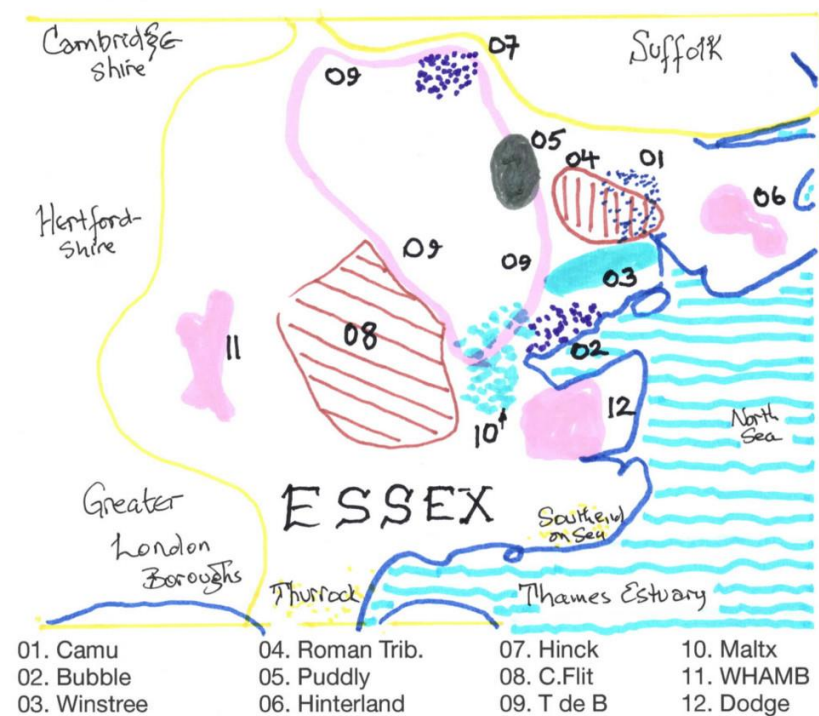 Cambridge
Shire
09
07
Suffolk
05
04
01
06
Hertford-
Shire
09
09
03
08
11
02
12
10
North
Sea
ESSEX
Greater
London
Boroughs
Southend
on Sea
Thurrock
Thames Estuary
01. Camu
02. Bubble
03. Winstree
04. Roman Trib.
05. Puddly
06. Hinterland
07. Hinck
08. C.Flit
09. T de B
10. Maltx
11. WHAMB
12. Dodge